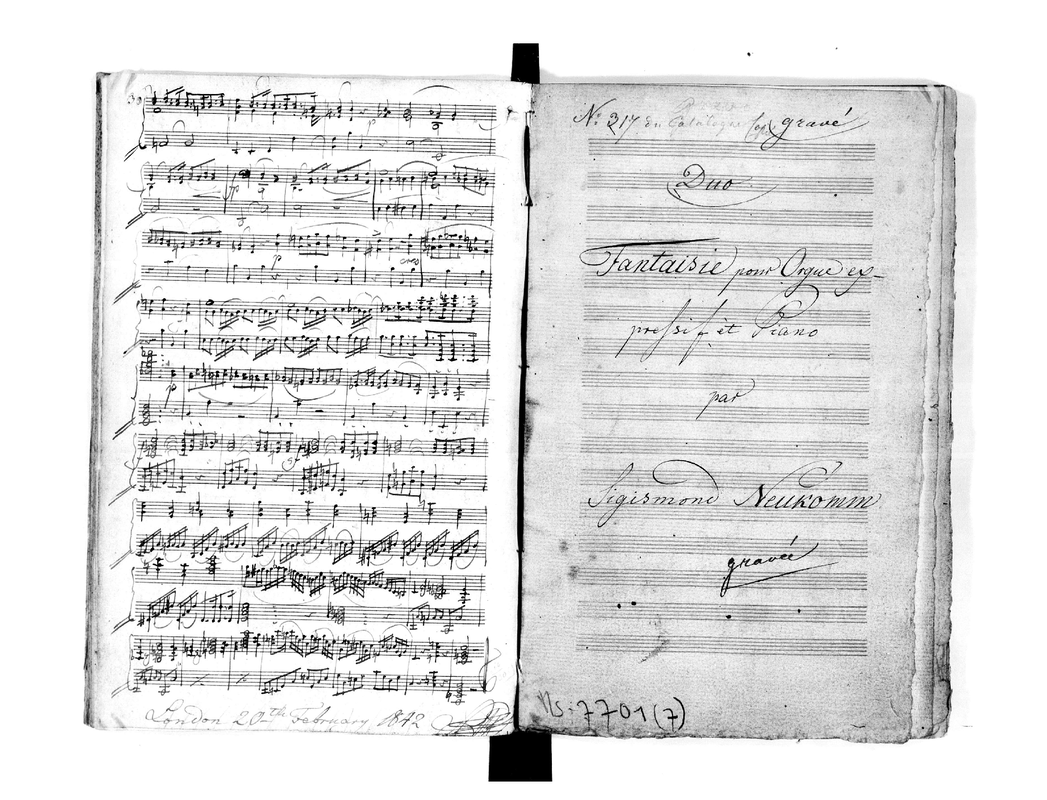 30
cres
London 20th February 1842
Nº 217 du Catalogue gravé
Duo
Fantaisie pour Orgue ex-
pressif et Piano
par
Sigismond Neukomm
gravée
Ms. 7701(7)